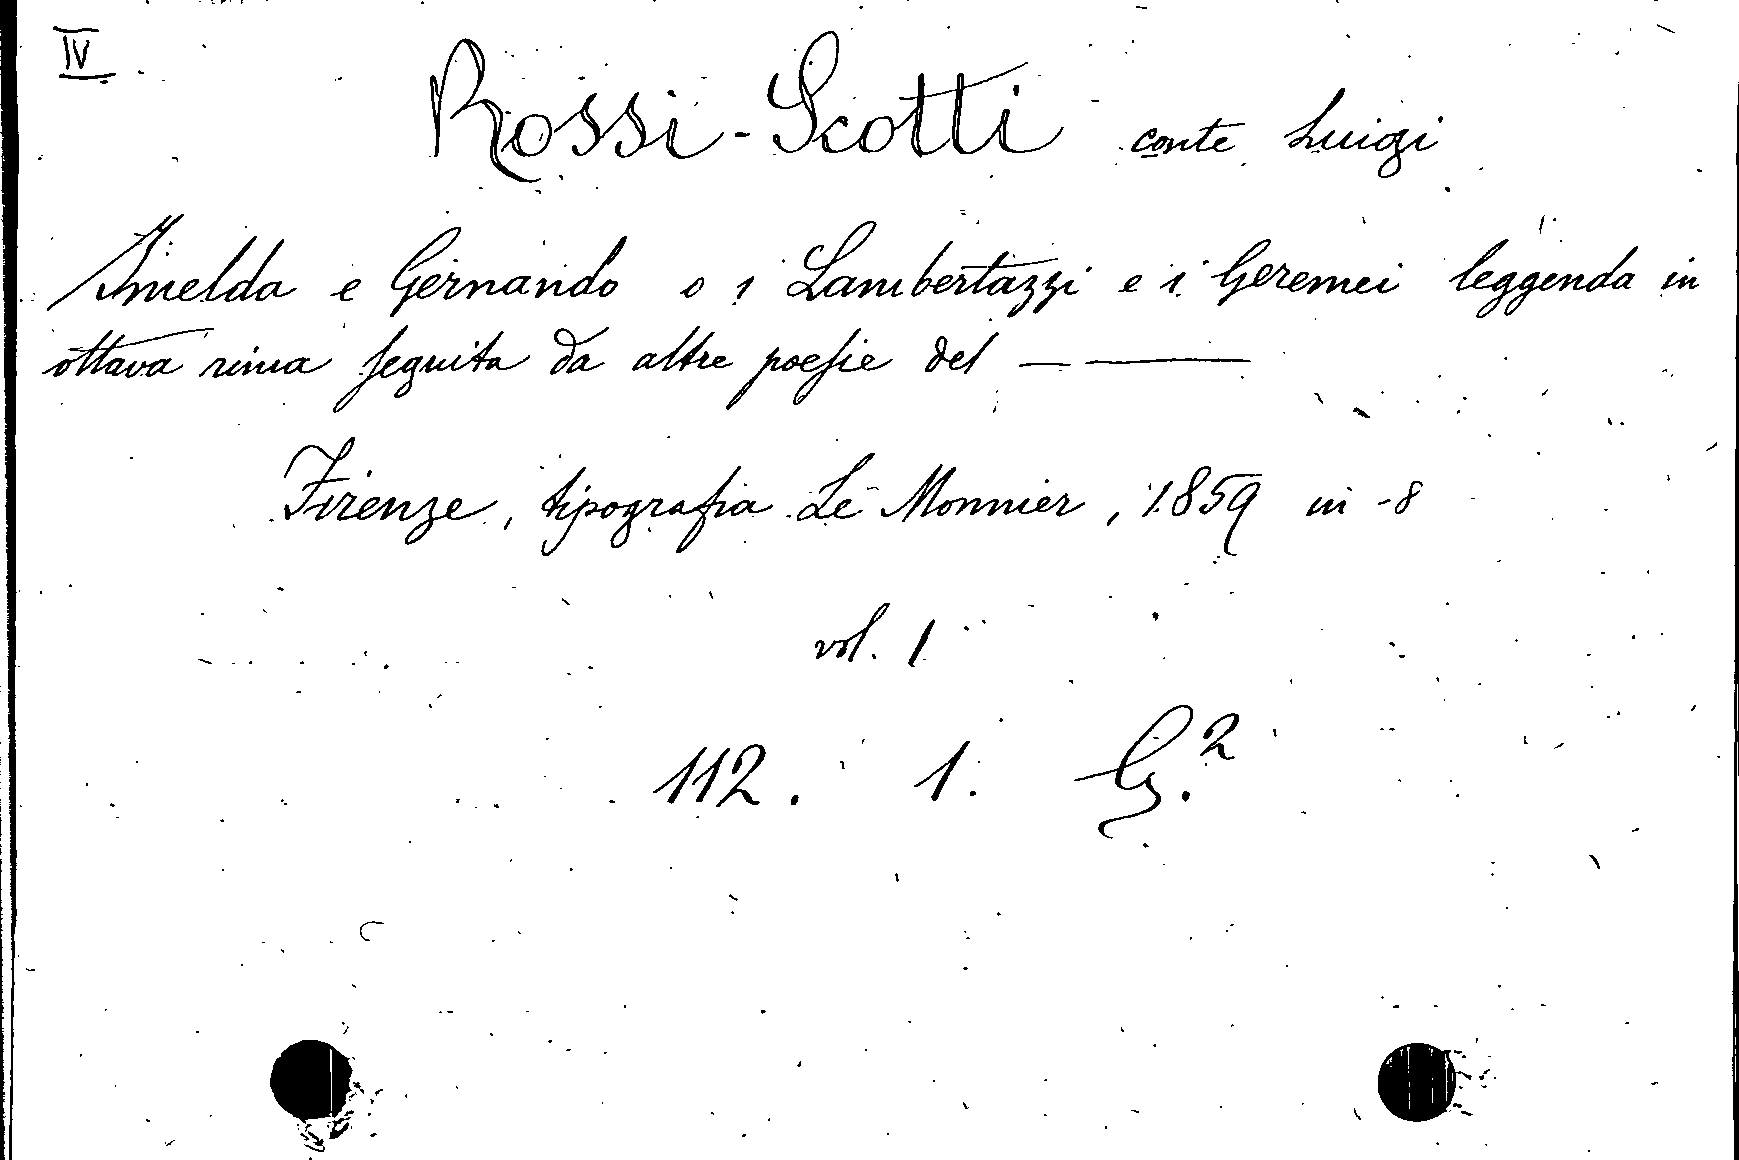 IV
Rossi-Scotti conte Luigi
Imelda e Gernando o i Lambertazzi e i Geremei leggenda in
ottava rima seguita da altre poesie del — ———
Firenze, tipografia Le Monnier, 1859 in-8
vol. 1
112. 1. G.²